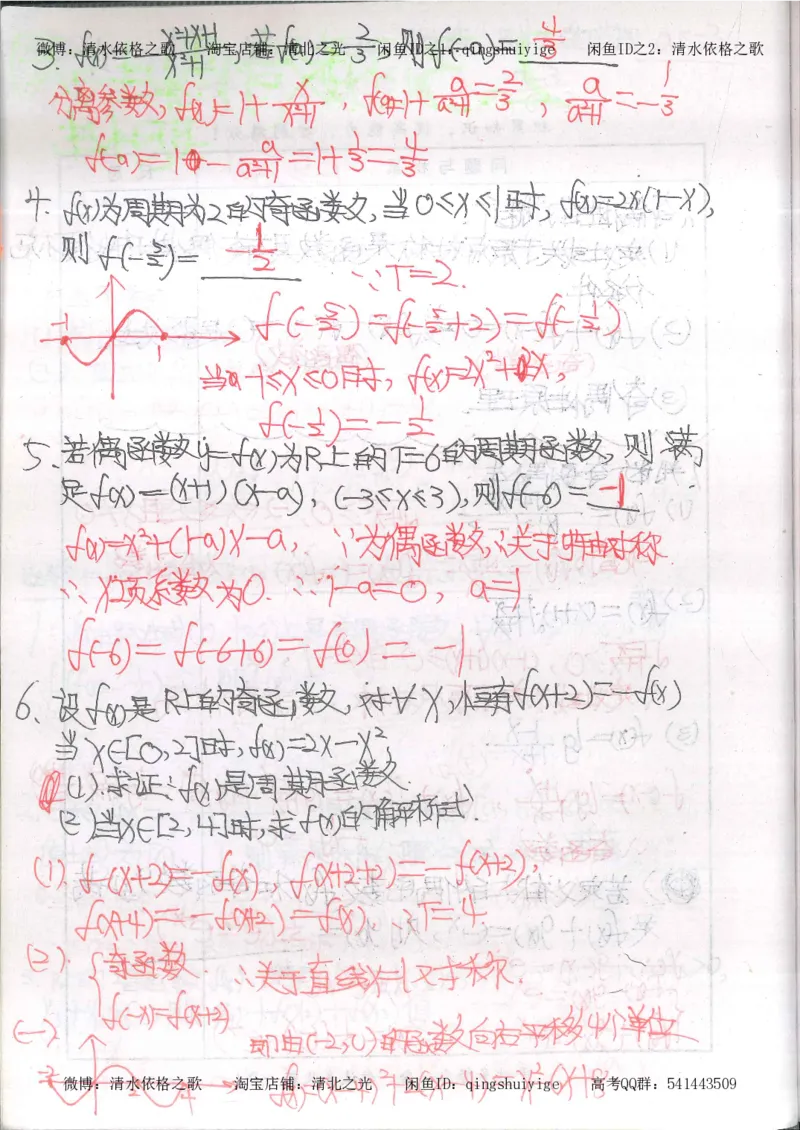 微博：清水依格之歌 淘宝店铺：清北之光 闲鱼ID之1：qingshuiyige 闲鱼ID之2：清水依格之歌
3. f(x)=x²+x+1/x²+1，若f(a)=2/3，则f(-a)=4/3
分离参数，f(x)=1+x/x²+1，f(a)=1+a/a²+1=2/3，a/a²+1=-1/3
f(-a)=1-a/a²+1=1+1/3=4/3
4. f(x)为周期为2的奇函数，当0≤x≤1时，f(x)=2x(1-x)，
则f(-5/2)=-1/2
∵T=2.
f(-5/2)=f(-5/2+2)=f(-1/2)
-1 1
当-1≤x≤0时，f(x)=2x²+2x，
f(-1/2)=-1/2
5. 若偶函数y=f(x)为R上的T=6的周期函数，则满
足f(x)=(x+1)(x-a)，(-3≤x≤3)，则f(-6)=-1
f(x)=x²+(1-a)x-a，∵为偶函数，∴关于y轴对称
∴x项系数为0.∴1-a=0，a=1
f(-6)=f(-6+6)=f(0)=-1
6、设f(x)是R上的奇函数，对∀x，恒有f(x+2)=-f(x)
当x∈[0,2]时，f(x)=2x-x²，
(1)、求证：f(x)是周期函数.
(2)当x∈[2,4]时，求f(x)的解析式.
(1). f(x+2)=-f(x)，f(x+2+2)=-f(x+2)，
f(x+4)=-f(x+2)=f(x)，∴T=4
(2). {奇函数. ∴关于直线x=1对称.
f(-x)=f(x+2)
(一)
即由(-2,0)的函数向右平移4个单位
-2 2 4
微博：清水依格之歌 淘宝店铺：清北之光 闲鱼ID：qingshuiyige 高考QQ群：541443509